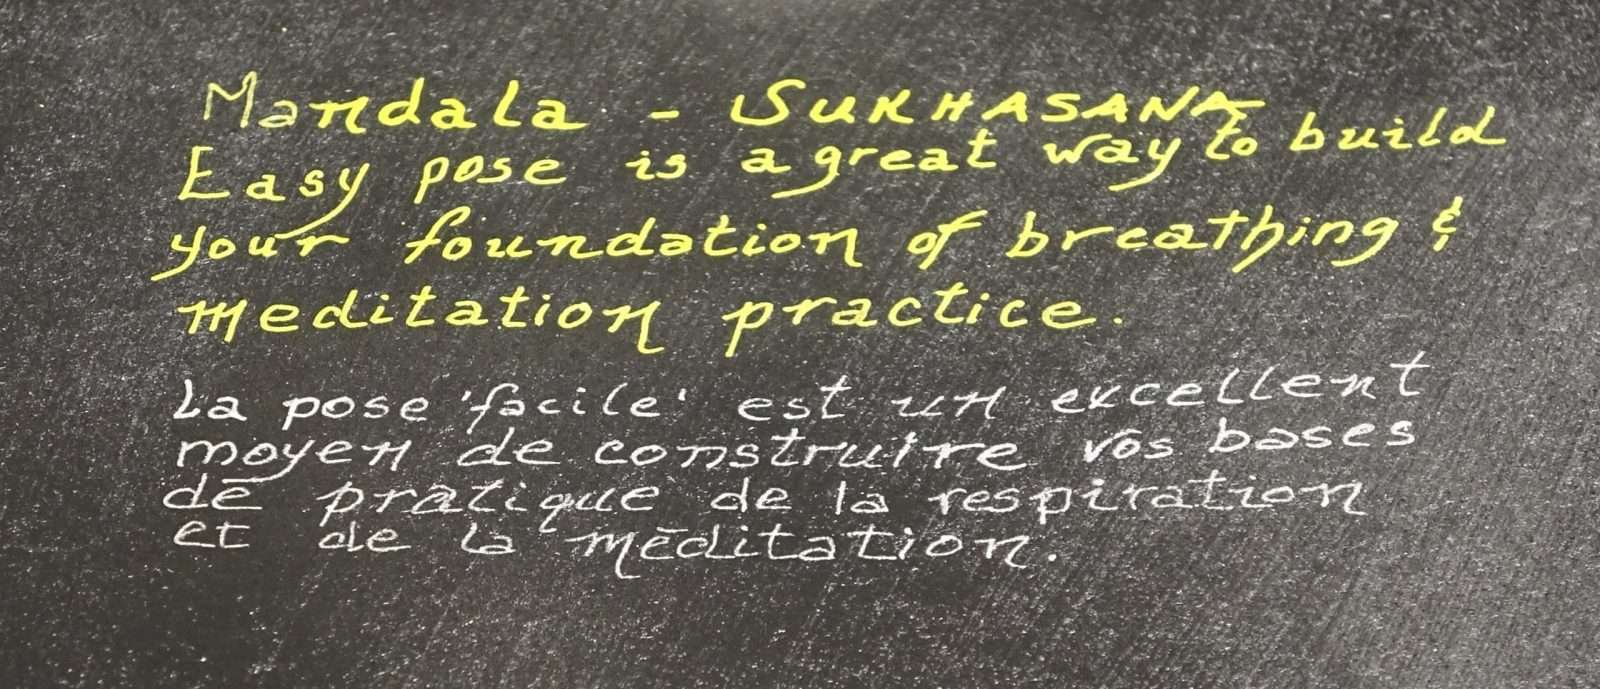 Mandala - SUKHASANA
Easy pose is a great way to build
your foundation of breathing &
meditation practice.
La pose 'facile' est un excellent
moyen de construire vos bases
de pratique de la respiration
et de la méditation.